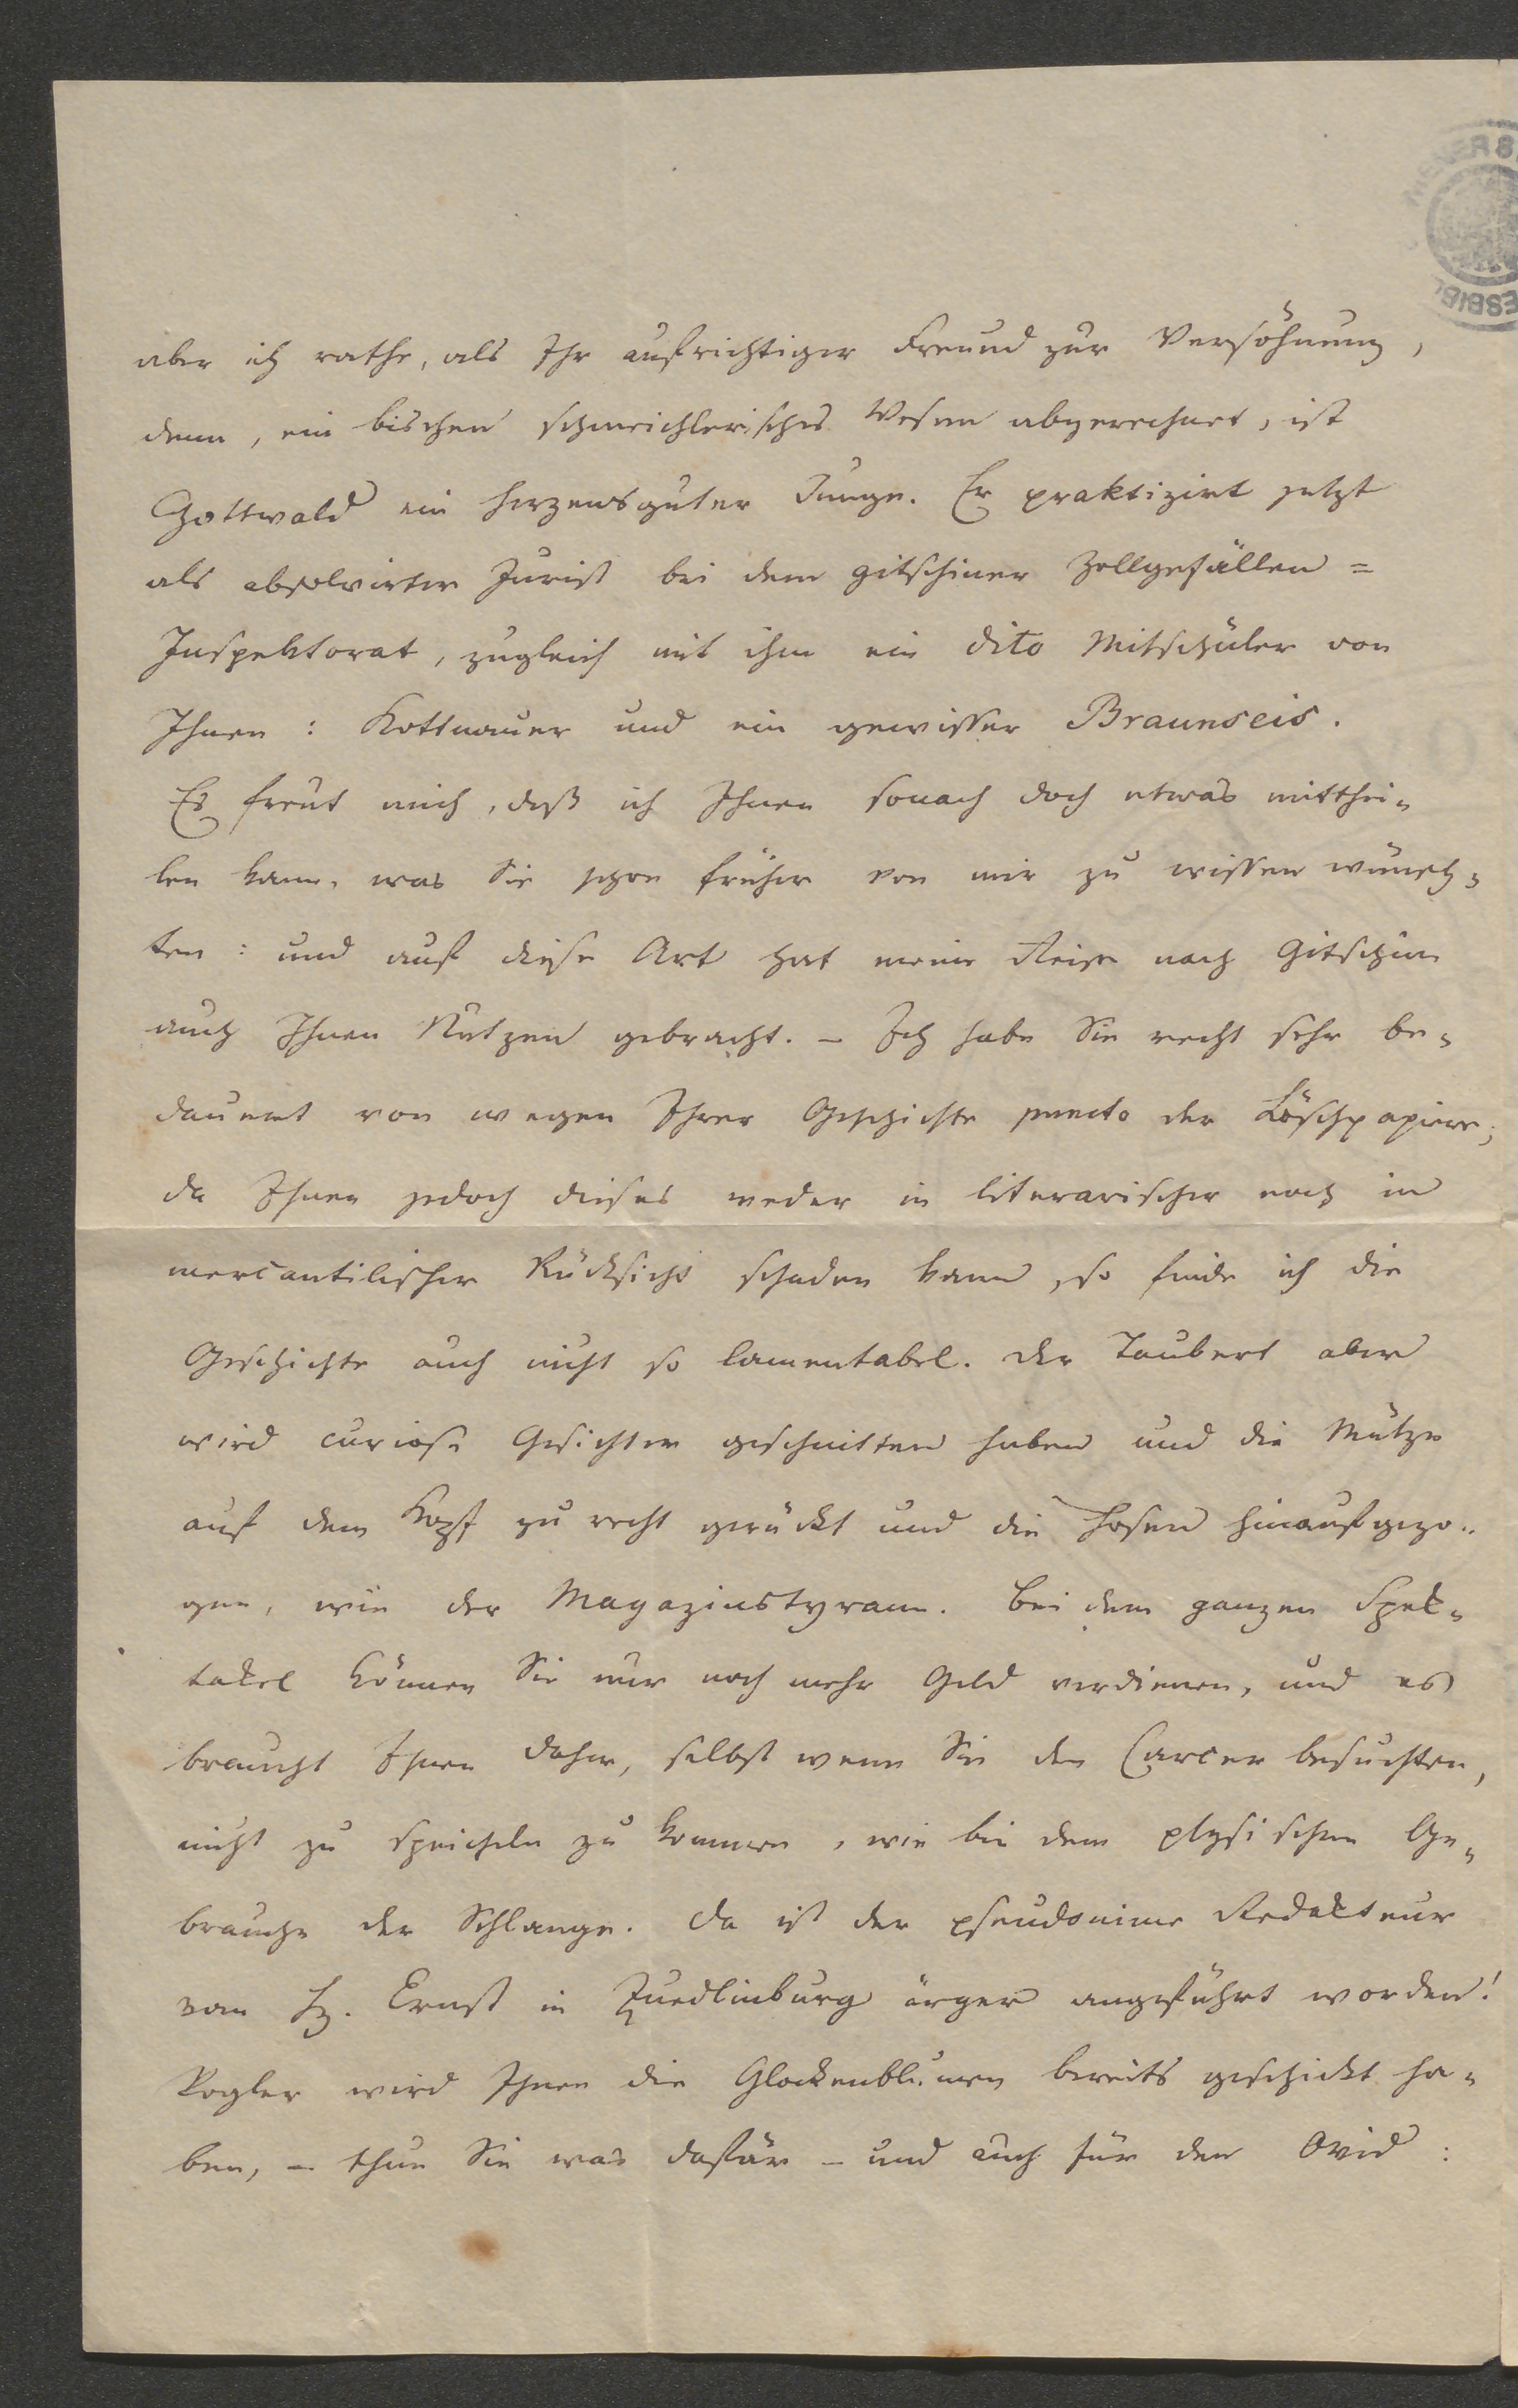 aber ich rathe, als Ihr aufrichtiger Freund zur Versöhnung,
denn, ein bischen schmeichlerisches Wesen abgerechnet, ist
Gottwald ein herzensguter Junge. Er praktizirt jetzt
als absolvirter Jurist bei dem gitschiner Zollgefällen=
Inspektorat, zugleich mit ihm ein dito Mitschüler von
Ihnen: Kottnauer und ein gewisser Braunseis.
Es freut mich, daß ich Ihnen sonach doch etwas mitthei-
len kann, was Sie schon früher von mir zu wissen wünsch-
ten: und auf diese Art hat meine Reise nach Gitschin
auch Ihnen Nutzen gebracht. – Ich habe Sie recht sehr be-
dauert von wegen Ihrer Geschichte puncto der Löschpapiere;
da Ihnen jedoch dieses weder in literarischer noch in
mercantilischer Rücksicht schaden kann, so finde ich die
Geschichte auch nicht so lamentabel. Der Taubert aber
wird curiose Gesichter geschnitten haben und die Mütze
auf dem Kopf zu recht gerückt und die Hosen hinaufgezo-
gen, wie der Magazinstyrann. Bei dem ganzen Spek-
takel können Sie nur noch mehr Geld verdienen, und es
braucht Ihnen daher, selbst wenn Sie den Carcer besuchten,
nicht zu speicheln zu kommen, wie bei dem physischen Ge-
brauche der Schlange. Da ist der pseudonime Redakteur
von H. Ernst in Quedlinburg ärger angeführt worden!
Vogler wird Ihnen die Glockenblumen bereits geschickt ha-
ben, – thun Sie was dafür – und auch für den Ovid:
WIENER S
ESBIBL